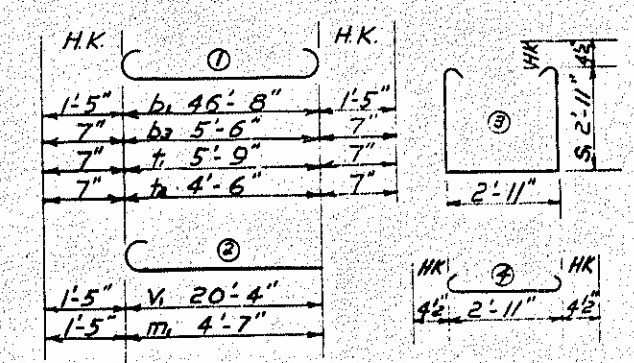 H.K. H.K.
①
1'-5" b₁ 46'-8" 1'-5"
7" b₃ 5'-6" 7"
7" t₁ 5'-9" 7"
7" t₂ 4'-6" 7"
②
1'-5" V₁ 20'-4"
1'-5" m₁ 4'-7"
HK 4½"
③
S₁ 2'-11"
2'-11"
HK ④ HK
4½" 2'-11" 4½"